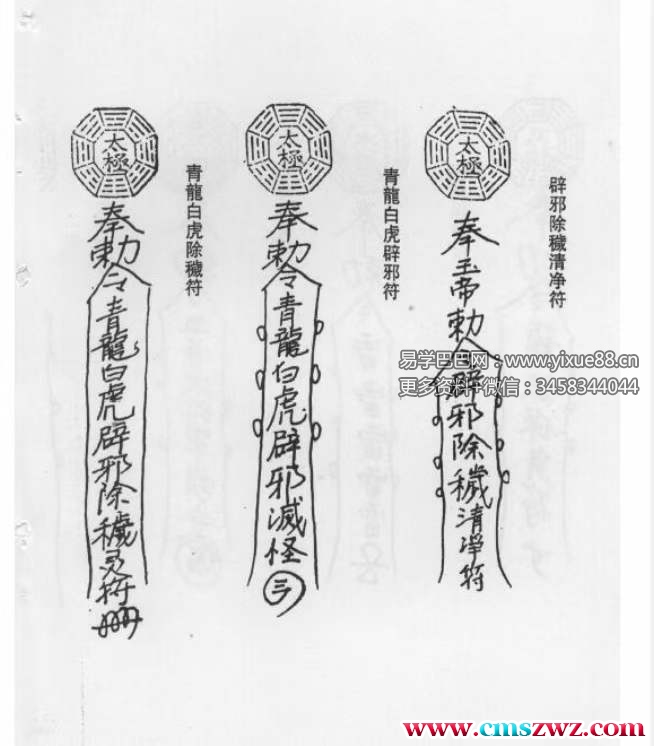 辟邪除穢清净符
太極
奉玉帝勅令辟邪除穢清净符
青龍白虎辟邪符
太極
奉勅令青龍白虎辟邪滅怪
青龍白虎除穢符
太極
奉勅令青龍白虎辟邪除穢灵符
易学巴巴网：www.yixue88.cn
更多资料+微信：3458344044
www.cmszwz.com